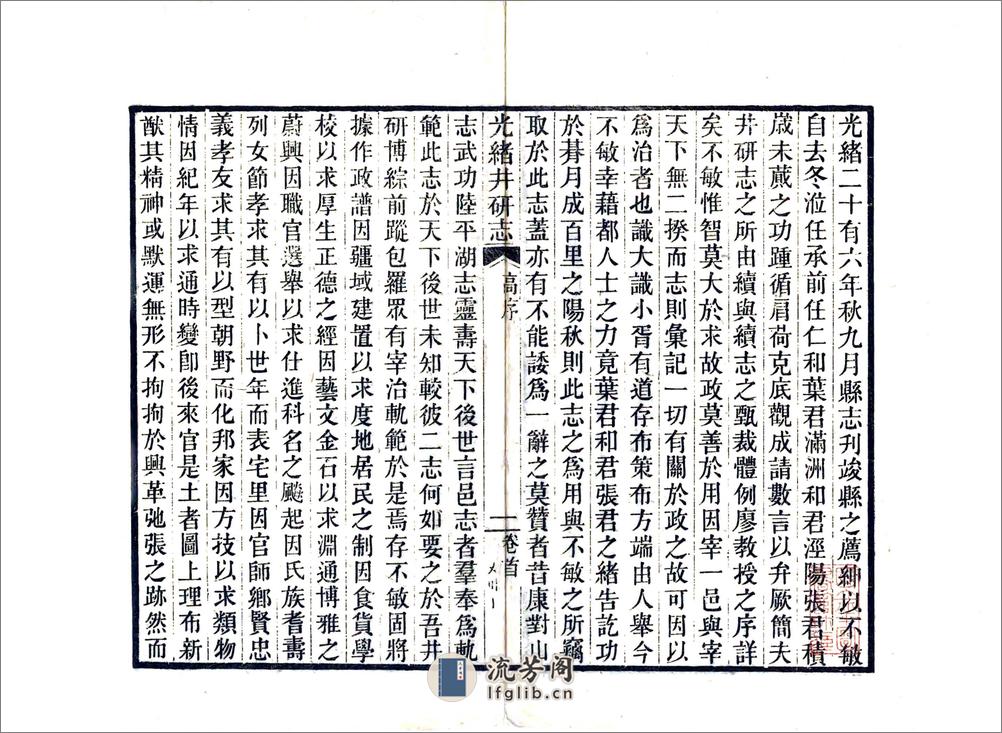 光緒二十有六年秋九月縣志刊竣縣之薦紳以不敏
自去冬涖任承前任仁和葉君滿洲和君涇陽張君積
歲未蕆之功踵循肩荷克底觀成請數言以弁厥簡夫
井研志之所由續與續志之甄裁體例廖教授之序詳
矣不敏惟智莫大於求故政莫善於用因宰一邑與宰
天下無二揆而志則彙記一切有關於政之故可因以
爲治者也識大識小胥有道存布策布方端由人舉今
不敏幸藉都人士之力竟葉君和君張君之緒告訖功
於朞月成百里之陽秋則此志之爲用與不敏之所竊
取於此志蓋亦有不能諉爲一辭之莫贊者昔康對山
光緒井研志 高序 卷首 一
志武功陸平湖志靈壽天下後世言邑志者羣奉爲軌
範此志於天下後世未知較彼二志何如要之於吾井
研博綜前蹤包羅眾有宰治軌範於是焉存不敏固將
據作政譜因疆域建置以求度地居民之制因食貨學
校以求厚生正德之經因藝文金石以求淵通博雅之
蔚興因職官選舉以求仕進科名之飇起因氏族耆壽
列女節孝求其有以卜世年而表宅里因官師鄉賢忠
義孝友求其有以型朝野而化邦家因方技以求類物
情因紀年以求通時變卽後來官是土者圖上理布新
猷其精神或默運無形不拘拘於興革弛張之跡然而
流芳阁
lfglib.cn